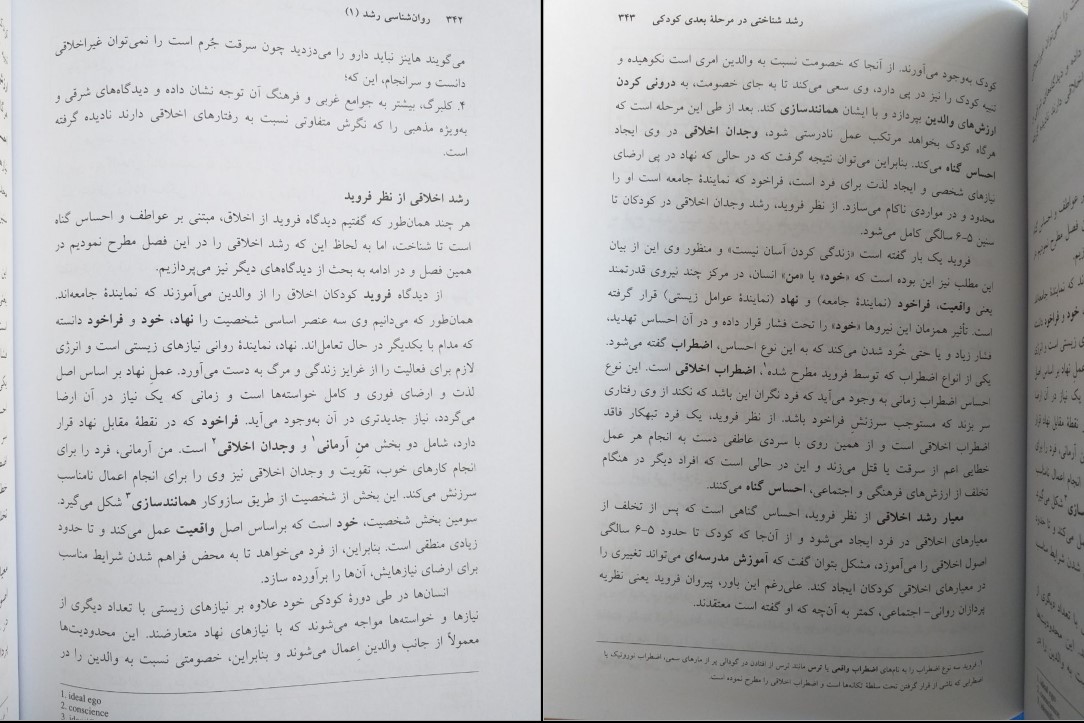 ۳۴۲ روان‌شناسی رشد (۱)
می‌گویند هاینز نباید دارو را می‌دزدید چون سرقت جُرم است را نمی‌توان غیراخلاقی
دانست و سرانجام، این که؛
۴. کلبرگ، بیشتر به جوامع غربی و فرهنگ آن توجه نشان داده و دیدگاه‌های شرقی و
به‌ویژه مذهبی را که نگرش متفاوتی نسبت به رفتارهای اخلاقی دارند نادیده گرفته
است.
رشد اخلاقی از نظر فروید
هر چند همان‌طور که گفتیم دیدگاه فروید از اخلاق، مبتنی بر عواطف و احساس گناه
است تا شناخت، اما به لحاظ این که رشد اخلاقی را در این فصل مطرح نمودیم در
همین فصل و در ادامه به بحث از دیدگاه‌های دیگر نیز می‌پردازیم.
از دیدگاه فروید کودکان اخلاق را از والدین می‌آموزند که نمایندۀ جامعه‌اند.
همان‌طور که می‌دانیم وی سه عنصر اساسی شخصیت را نهاد، خود و فراخود دانسته
که مدام با یکدیگر در حال تعامل‌اند. نهاد، نمایندۀ روانی نیازهای زیستی است و انرژی
لازم برای فعالیت را از غرایز زندگی و مرگ به دست می‌آورد. عملِ نهاد بر اساس اصل
لذت و ارضای فوری و کامل خواسته‌ها است و زمانی که یک نیاز در آن ارضا
می‌گردد، نیاز جدیدتری در آن به‌وجود می‌آید. فراخود که در نقطۀ مقابل نهاد قرار
دارد، شامل دو بخش منِ آرمانی۱ و وجدان اخلاقی۲ است. من آرمانی، فرد را برای
انجام کارهای خوب، تقویت و وجدان اخلاقی نیز وی را برای انجام اعمال نامناسب
سرزنش می‌کند. این بخش از شخصیت از طریق سازوکار همانندسازی۳ شکل می‌گیرد.
سومین بخش شخصیت، خود است که براساس اصل واقعیت عمل می‌کند و تا حدود
زیادی منطقی است. بنابراین، از فرد می‌خواهد تا به محض فراهم شدن شرایط مناسب
برای ارضای نیازهایش، آن‌ها را برآورده سازد.
انسان‌ها در طی دورۀ کودکی خود علاوه بر نیازهای زیستی با تعداد دیگری از
نیازها و خواسته‌ها مواجه می‌شوند که با نیازهای نهاد متعارضند. این محدودیت‌ها
معمولاً از جانب والدین اعمال می‌شوند و بنابراین، خصومتی نسبت به والدین را در
1. ideal ego
2. conscience
رشد شناختی در مرحلۀ بعدی کودکی ۳۴۳
کودک به‌وجود می‌آورند. از آنجا که خصومت نسبت به والدین امری است نکوهیده و
تنبیه کودک را نیز در پی دارد، وی سعی می‌کند تا به جای خصومت، به درونی کردن
ارزش‌های والدین بپردازد و با ایشان همانندسازی کند. بعد از طی این مرحله است که
هرگاه کودک بخواهد مرتکب عمل نادرستی شود، وجدان اخلاقی در وی ایجاد
احساس گناه می‌کند. بنابراین می‌توان نتیجه گرفت که در حالی که نهاد در پی ارضای
نیازهای شخصی و ایجاد لذت برای فرد است، فراخود که نمایندۀ جامعه است او را
محدود و در مواردی ناکام می‌سازد. از نظر فروید، رشد وجدان اخلاقی در کودکان تا
سنین ۵-۶ سالگی کامل می‌شود.
فروید یک بار گفته است «زندگی کردن آسان نیست» و منظور وی این از بیان
این مطلب نیز این بوده است که «خود» یا «من» انسان، در مرکز چند نیروی قدرتمند
یعنی واقعیت، فراخود (نمایندۀ جامعه) و نهاد (نمایندۀ عوامل زیستی) قرار گرفته
است. تأثیر همزمان این نیروها «خود» را تحت فشار قرار داده و در آن احساس تهدید،
فشار زیاد و یا حتی خُرد شدن می‌کند که به این نوع احساس، اضطراب گفته می‌شود.
یکی از انواع اضطراب که توسط فروید مطرح شده۱، اضطراب اخلاقی است. این نوع
احساس اضطراب زمانی به وجود می‌آید که فرد نگران این باشد که نکند از وی رفتاری
سر بزند که مستوجب سرزنشِ فراخود باشد. از نظر فروید، یک فرد تبهکار فاقد
اضطراب اخلاقی است و از همین روی با سردی عاطفی دست به انجام هر عمل
خطایی اعم از سرقت یا قتل می‌زند و این در حالی است که افراد دیگر در هنگام
تخلف از ارزش‌های فرهنگی و اجتماعی، احساس گناه می‌کنند.
معیار رشد اخلاقی از نظر فروید، احساس گناهی است که پس از تخلف از
معیارهای اخلاقی در فرد ایجاد می‌شود و از آن‌جا که کودک تا حدود ۵-۶ سالگی
اصول اخلاقی را می‌آموزد، مشکل بتوان گفت که آموزش مدرسه‌ای می‌تواند تغییری را
در معیارهای اخلاقی کودکان ایجاد کند. علی‌رغم این باور، پیروان فروید یعنی نظریه
پردازان روانی- اجتماعی، کمتر به آن‌چه که او گفته است معتقدند.
۱ فروید سه نوع اضطراب را به نام‌های اضطراب واقعی یا ترس مانند ترس از افتادن در گودالی پر از مارهای سمی، اضطراب نوروتیک یا
اضطرابی که ناشی از قرار گرفتن تحت سلطۀ تکانه‌ها است و اضطراب اخلاقی را مطرح نموده است.